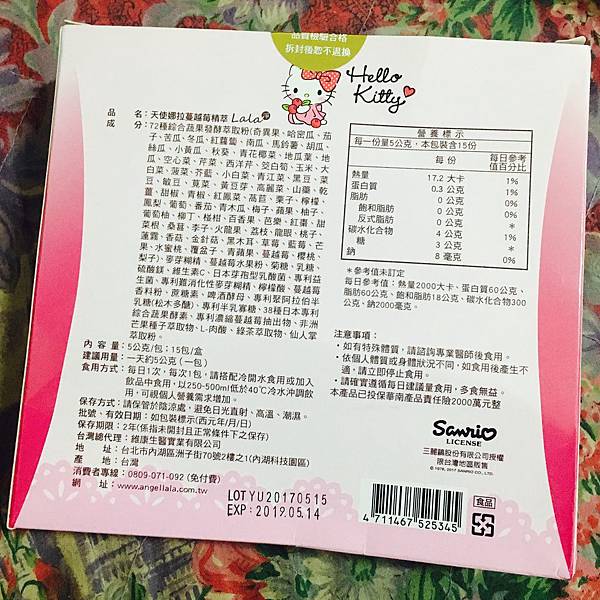 品質檢驗合格
拆封後恕不退換
Hello
Kitty
品　　名：天使娜拉蔓越莓精萃 Lala
成　　分：72種綜合蔬果發酵萃取粉(奇異果、哈密瓜、茄
子、苦瓜、冬瓜、紅蘿蔔、南瓜、馬鈴薯、胡瓜、
絲瓜、小黃瓜、秋葵、青花椰菜、地瓜葉、地
瓜、空心菜、芹菜、西洋芹、茭白筍、玉米、大
白菜、菠菜、芥藍、小白菜、青江菜、黑豆、菜
豆、敏豆、莧菜、黃豆芽、高麗菜、山藥、乾
薑、甜椒、青椒、紅鳳菜、萵苣、栗子、檸檬、
鳳梨、葡萄、番茄、青木瓜、梅子、蘋果、柚子、
葡萄柚、柳丁、椪柑、百香果、芭樂、紅棗、甜
菜根、桑葚、李子、火龍果、荔枝、龍眼、桃子、
蓮霧、香菇、金針菇、黑木耳、草莓、藍莓、芒
果、水蜜桃、覆盆子、青蘋果、蔓越莓、櫻桃、
梨子)、麥芽糊精、蔓越莓水果粉、菊糖、乳糖、
硫酸鎂、維生素C、日本芽孢型乳酸菌、專利益
生菌、專利難消化性麥芽糊精、檸檬酸、蔓越莓
香料粉、蔗糖素、啤酒酵母、專利聚阿拉伯半
乳糖(松木多醣)、專利半乳寡糖、38種日本專利
綜合蔬果酵素、專利濃縮蔓越莓抽出物、非洲
芒果種子萃取物、L-肉酸、綠茶萃取物、仙人掌
萃取粉。
內 容 量：5公克/包；15包/盒
建議用量：一天約5公克（一包）
食用方式：每日1次，每次1包，請搭配冷開水食用或加入
飲品中食用，以250-500ml低於40°C冷水沖調飲
用，可視個人營養需求增加。
保存方式：請保管於陰涼處，避免日光直射、高溫、潮濕。
批號、有效日期：如包裝標示(西元年/月/日)
保存期限：2年(係指未開封且正常條件下之保存)
台灣總代理：維康生醫實業有限公司
地　　址：台北市內湖區洲子街70號2樓之1(內湖科技園區)
產　　地：台灣
消費者專線：0809-071-092 (免付費)
網　　址：www.angellala.com.tw
LOT YU20170515
EXP : 2019.05.14
營養標示
每一份量5公克，本包裝含15份
每份　每日參考值百分比
熱量　17.2 大卡　1%
蛋白質　0.3 公克　1%
脂肪　0 公克　0%
飽和脂肪　0 公克　0%
反式脂肪　0 公克　*
碳水化合物　4 公克　1%
糖　3 公克　*
鈉　8 毫克　0%
＊參考值未訂定
每日參考值：熱量2000大卡、蛋白質60公克、
脂肪60公克、飽和脂肪18公克、碳水化合物300
公克、鈉2000毫克。
注意事項：
•如有特殊體質，請諮詢專業醫師後食用。
•依個人體質或身體狀況不同，如食用後產生不
適，請立即停止食用。
•請確實遵循每日建議量食用，多食無益。
本產品已投保華南產品責任險2000萬元整
Sanrio
LICENSE
三麗鷗股份有限公司授權
限台灣地區販售
© 1976, 2017 SANRIO CO., LTD.
食品
4 711467 525345